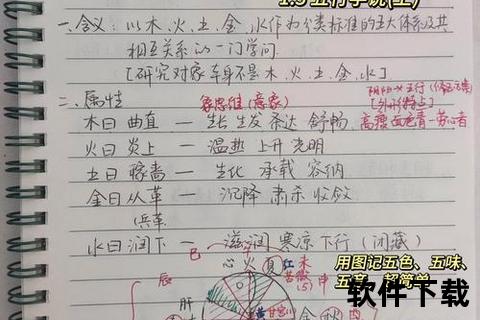 1.3 五行学说(上)
一、含义：以木、火、土、金、水作为分类标准的五大体系及其
相互关系的一门学问
[研究对象本身不是木、火、土、金、水]
二、属性
象思维(意象)
[外形特点]
木曰曲直 — 生长 生发 条达 舒畅
高瘦 面色青 — 劳心者
火曰炎上 — 温热 上升 光明
土曰稼啬 — 生化 承载 容纳
金曰从革 — 沉降 肃杀 收敛
(兵革
水曰润下 — 滋润 寒凉 下行 (闭藏)
巳
心 火 夏 红 未
辰
苦
(5) 申
肝
用图记五色、五味、
五音，超简单
软件下载